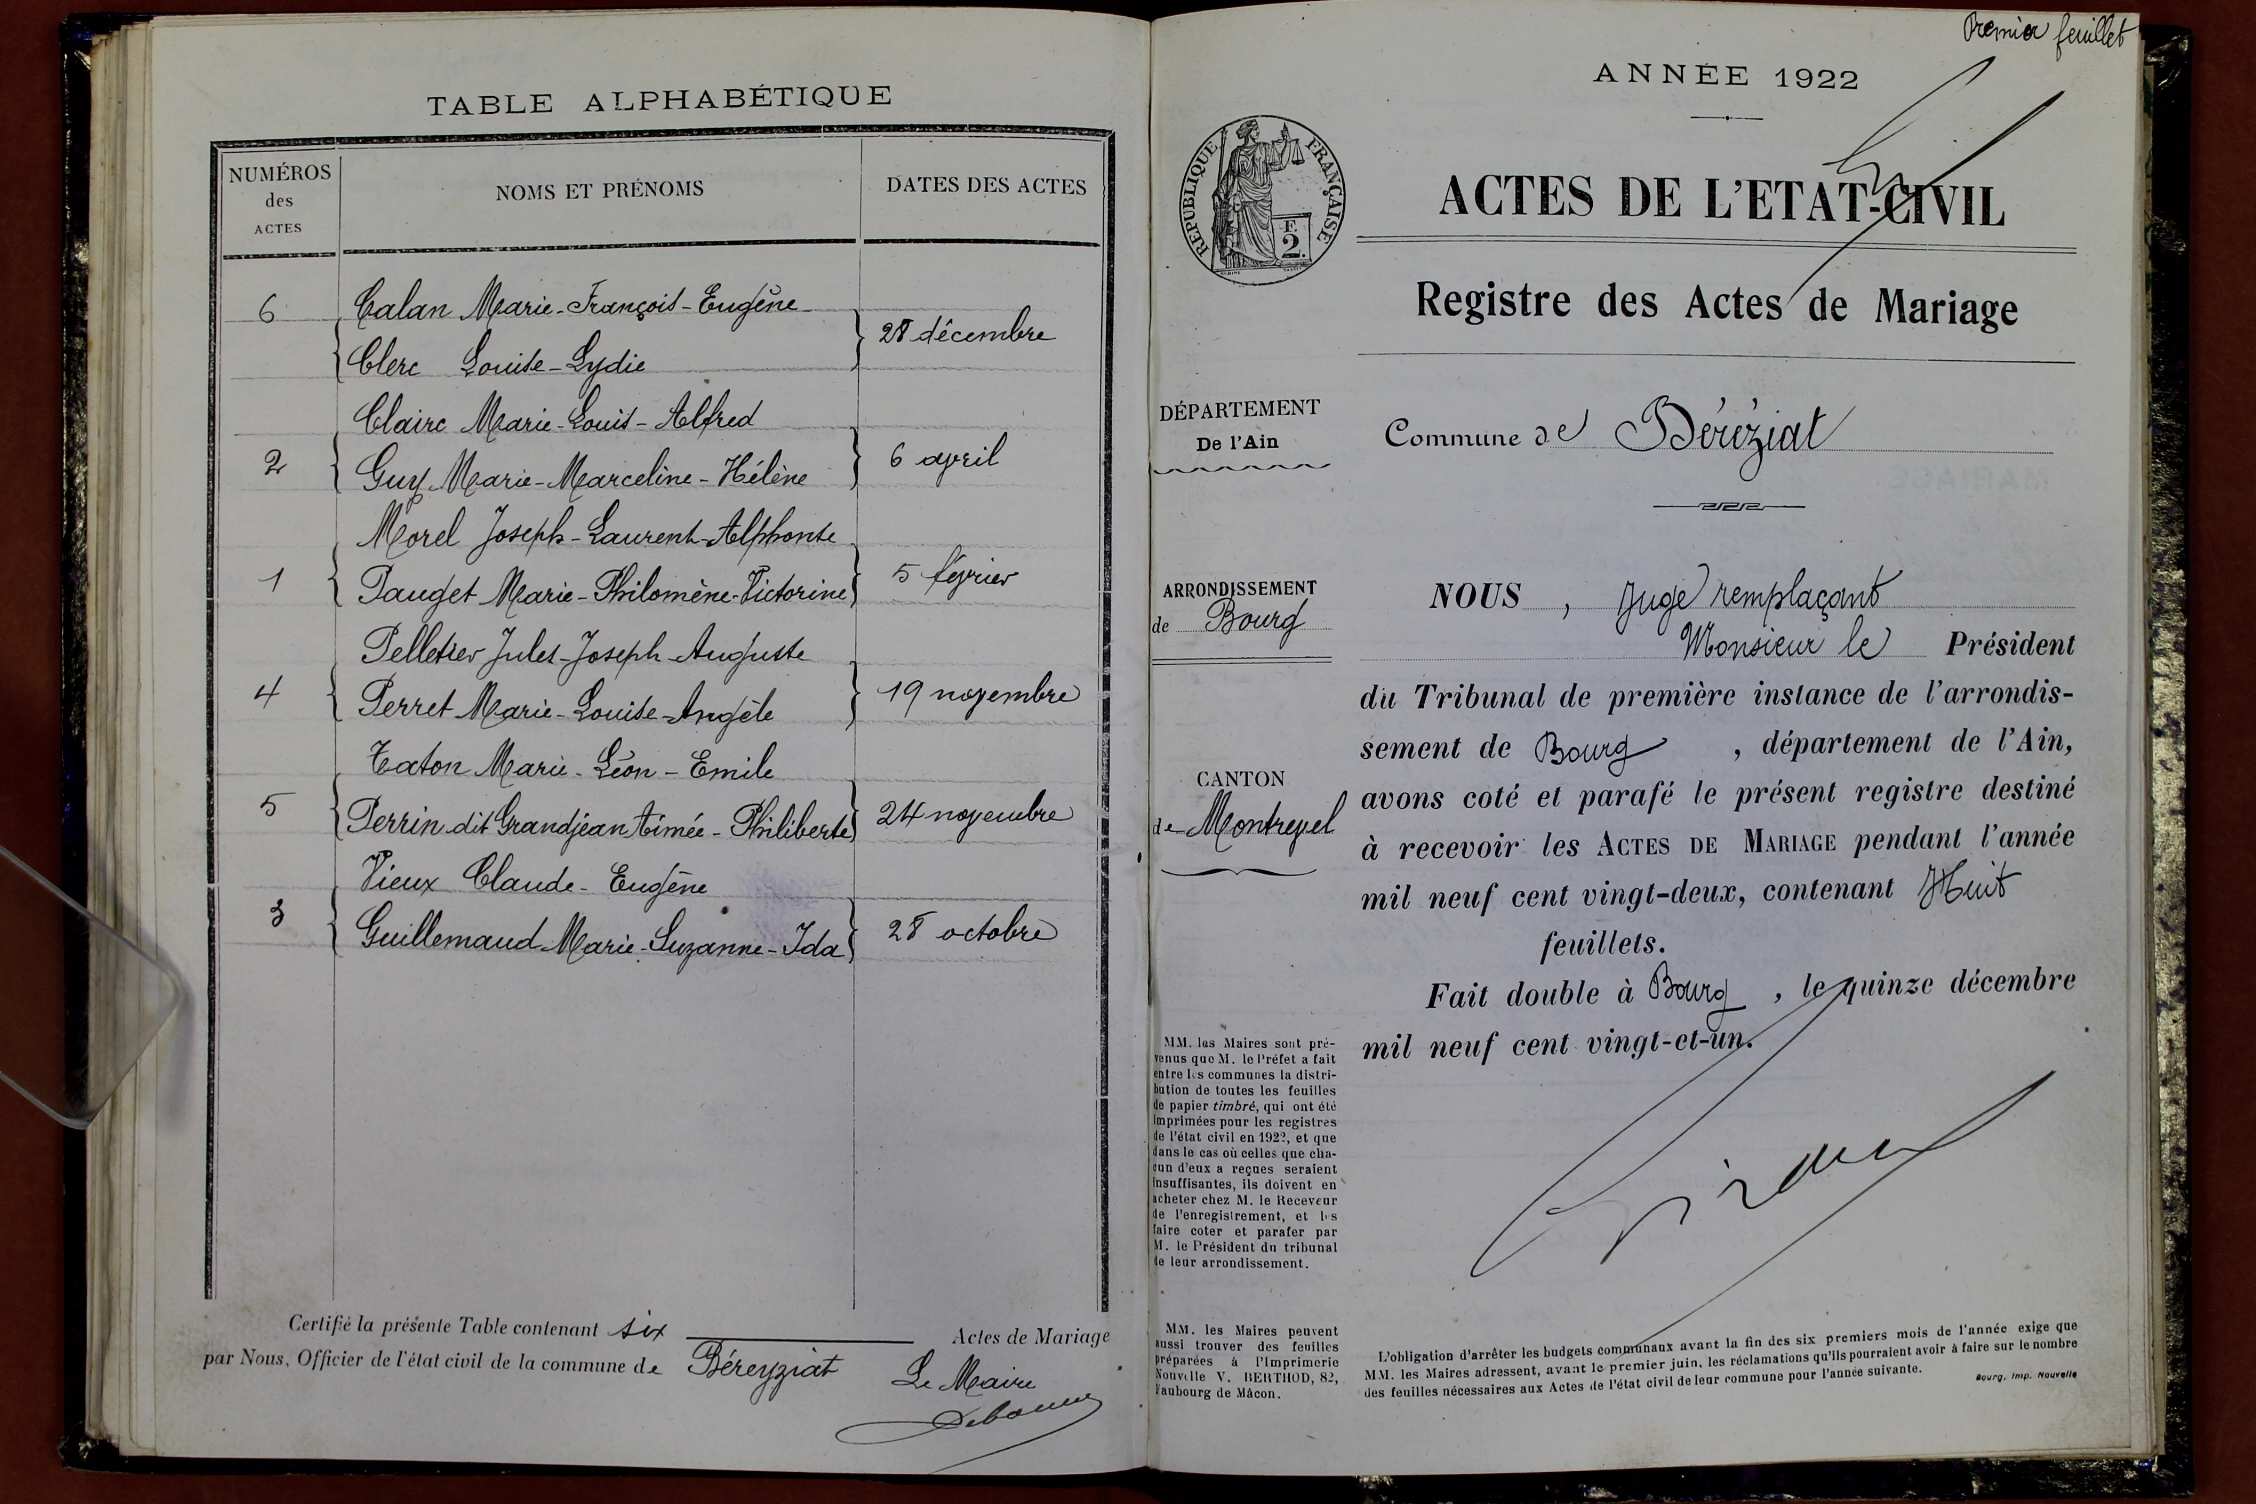 TABLE ALPHABÉTIQUE
NUMÉROS des ACTES
NOMS ET PRÉNOMS
DATES DES ACTES
6 Calan Marie-François-Eugène
28 décembre
Clerc Louise-Lydie
Claire Marie-Louis-Alfred
2 Guy Marie-Marceline-Hélène 6 avril
Morel Joseph-Laurent-Alphonse
1 Pauget Marie-Philomène-Victorine 5 février
Pelletier Jules-Joseph-Auguste
4 Perret Marie-Louise-Angèle 19 novembre
Taton Marie-Léon-Emile
5 Perrin dit Grandjean Aimée-Philiberte 24 novembre
Vieux Claude-Eugène
3 Guillemaud Marie-Suzanne-Ida 28 octobre
Certifié la présente Table contenant six Actes de Mariage
par Nous, Officier de l'état civil de la commune de Béreyziat
Le Maire
Premier feuillet
ANNÉE 1922
RÉPUBLIQUE FRANÇAISE
F.
2.
ACTES DE L'ETAT-CIVIL
Registre des Actes de Mariage
DÉPARTEMENT
De l'Ain
Commune de Béréziat
ARRONDISSEMENT
de Bourg
CANTON
de Montrevel
NOUS, Juge remplaçant
Monsieur le Président
du Tribunal de première instance de l'arrondis-
sement de Bourg, département de l'Ain,
avons coté et parafé le présent registre destiné
à recevoir les ACTES DE MARIAGE pendant l'année
mil neuf cent vingt-deux, contenant Huit
feuillets.
Fait double à Bourg, le quinze décembre
mil neuf cent vingt-et-un.
MM. les Maires sont pré-
venus que M. le Préfet a fait
entre les communes la distri-
bution de toutes les feuilles
de papier timbré, qui ont été
imprimées pour les registres
de l'état civil en 1922, et que
dans le cas où celles que cha-
cun d'eux a reçues seraient
insuffisantes, ils doivent en
acheter chez M. le Receveur
de l'enregistrement, et les
faire coter et parafer par
M. le Président du tribunal
de leur arrondissement.
MM. les Maires peuvent
aussi trouver des feuilles
préparées à l'Imprimerie
Nouvelle V. BERTHOD, 82,
Faubourg de Mâcon.
L'obligation d'arrêter les budgets communaux avant la fin des six premiers mois de l'année exige que
MM. les Maires adressent, avant le premier juin, les réclamations qu'ils pourraient avoir à faire sur le nombre
des feuilles nécessaires aux Actes de l'état civil de leur commune pour l'année suivante.
Bourg, Imp. Nouvelle